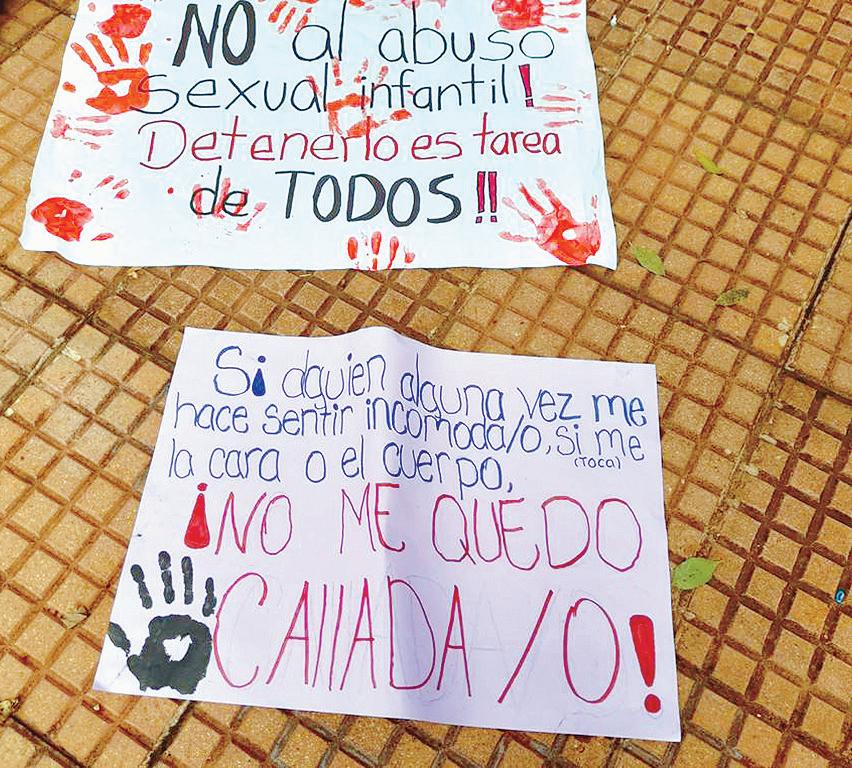 NO al abuso
sexual infantil!
Detenerlo es tarea
de TODOS!!
Si alguien alguna vez me
hace sentir incomoda/o, si me
(TOCA)
la cara o el cuerpo,
¡NO ME QUEDO
CAllADA/O!